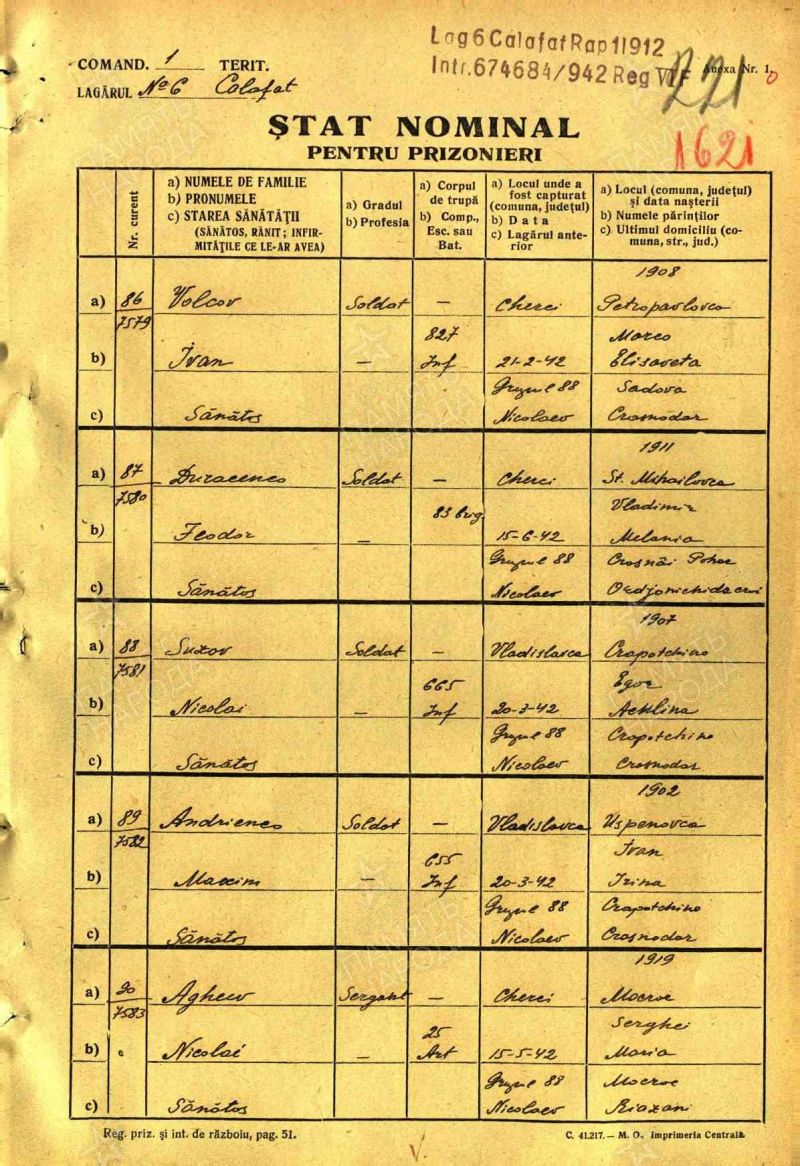 Lag 6 Calafat Rap 11912
Intr. 674684/942 Reg VII
COMAND. 1 TERIT. Anexa Nr. 1
LAGĂRUL No 6 Calafat
221
ȘTAT NOMINAL
1621
PENTRU PRIZONIERI
Nr. curent
a) NUMELE DE FAMILIE
b) PRONUMELE
c) STAREA SĂNĂTĂȚII
(SĂNĂTOS, RĂNIT; INFIR-
MITĂȚILE CE LE-AR AVEA)
a) Gradul
b) Profesia
a) Corpul
de trupă
b) Comp.,
Esc. sau
Bat.
a) Locul unde a
fost capturat
(comuna, județul)
b) Data
c) Lagărul ante-
rior
a) Locul (comuna, județul)
și data nașterii
b) Numele părinților
c) Ultimul domiciliu (co-
muna, str., jud.)
1908
a) 86 Volcov Soldat — Cherci Petropavlovca
7579
827 Marco
b) Ivan — Inf 21-2-42 Elisaveta
Grupul 88 Sadova
c) Sănătos Nicolaev Crasnodar
1911
a) 87 Duracenco Soldat — Cherci St. Mihailovca
7580
83 brig. Vladimir
b) Feodor — 15-6-42 Melania
Grupul 88 Crasnâi
c) Sănătos Nicolaev
1907
a) 88 Suxov Soldat — Vladislavca Crapotchino
7581
665 Egor
b) Nicolai — Inf 20-3-42 Achlina
Grupul 88 Crapotchino
c) Sănătos Nicolaev Crasnodar
1902
a) 89 Andrienco Soldat — Vladislavca Uspenovca
7582
655 Ivan
b) Maxim — Inf 20-3-42 Irina
Grupul 88 Crapotchino
c) Sănătos Nicolaev Crasnodar
1919
a) 90 Agheev Sergent — Cherci Mocroe
7583
25 Serghei
b) Nicolai — Art 15-5-42 Maria
Grupul 88 Mocroe
c) Sănătos Nicolaev Riazani
Reg. priz. și int. de războiu, pag. 51. C. 41.217. — M. O., Imprimeria Centrală.
V.
ПАМЯТЬ НАРОДА